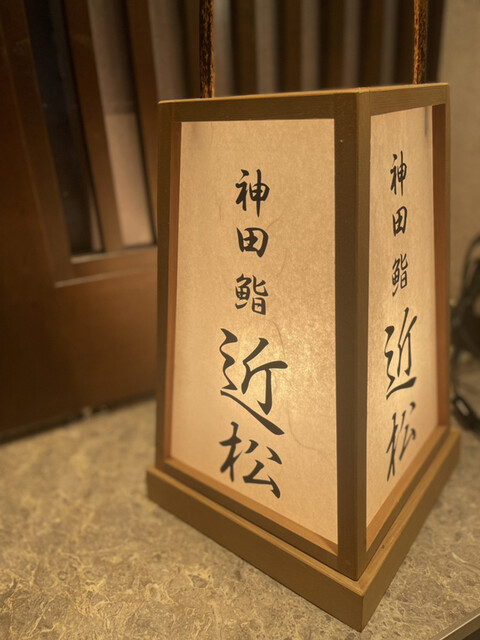 神田
鮨
近松
神田
鮨
近松